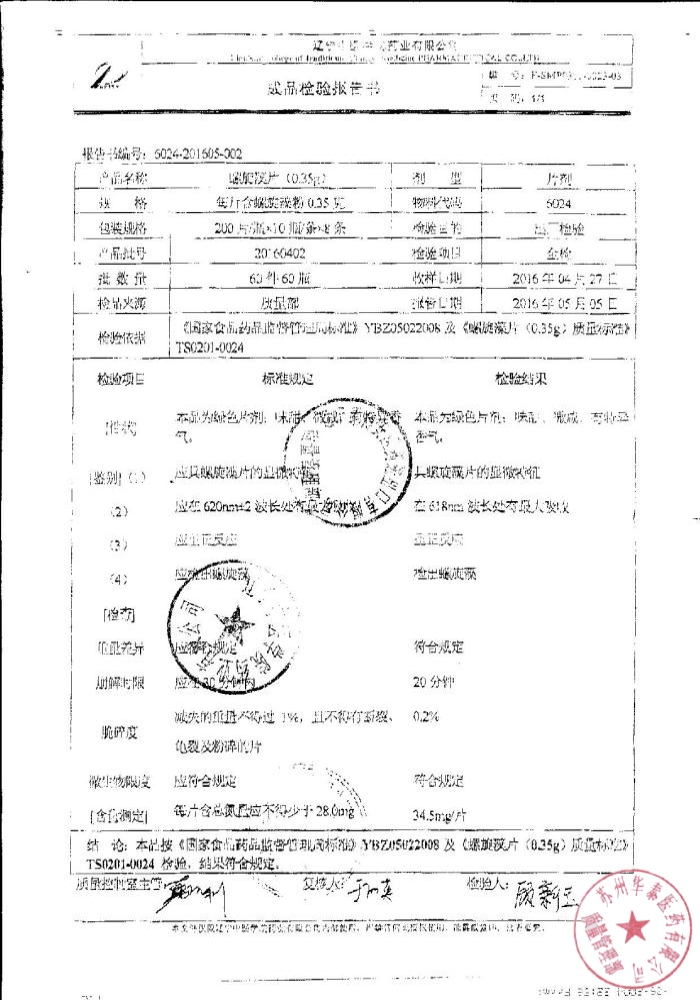 药业有限公司
成品检验报告书
报告书编号：6024-201605-002
产品名称 螺旋藻片（0.35g） 剂 型 片剂
规 格 每片含螺旋藻粉 0.35 克 物料代码 6024
包装规格 200 片/瓶×10 瓶/条×8 条 检验目的 出厂检验
产品批号 20160402 检验项目 全检
批 数 量 60 件 60 瓶 收样日期 2016 年 04 月 27 日
检品来源 质量部 报告日期 2016 年 05 月 05 日
检验依据 《国家食品药品监督管理局标准》YBZ05022008 及《螺旋藻片（0.35g）质量标准》
TS0201-0024
检验项目 标准规定 检验结果
[性状] 本品为绿色片剂；味甜、微咸，有特异香气。 本品为绿色片剂；味甜、微咸，有特异香气。
[鉴别]（1） 应具螺旋藻片的显微特征 具螺旋藻片的显微特征
（2） 应在 620nm±2 波长处有最大吸收 在 618nm 波长处有最大吸收
（3） 应呈正反应 呈正反应
（4） 应检出螺旋藻 检出螺旋藻
[检查]
重量差异 应符合规定 符合规定
崩解时限 应在 30 分钟内 20 分钟
脆碎度 减失的重量不得过 1%，且不得有断裂、 0.2%
龟裂及粉碎的片
微生物限度 应符合规定 符合规定
[含量测定] 每片含总氮量应不得少于 28.0mg 34.5mg/片
结 论：本品按《国家食品药品监督管理局标准》YBZ05022008 及《螺旋藻片（0.35g）质量标准》
TS0201-0024 检验，结果符合规定。
质量控制室主管： 复核人： 检验人：顾新玉
苏州华泰医药有限公司
质量管理章